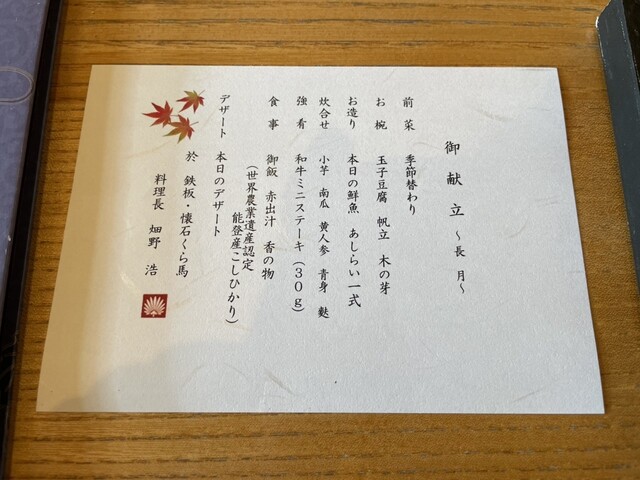 御献立 ～長月～
前菜 季節替わり
お椀 玉子豆腐 帆立 木の芽
お造り 本日の鮮魚 あしらい一式
炊合せ 小芋 南瓜 黄人参 青身 麩
強肴 和牛ミニステーキ（30g）
食事 御飯 赤出汁 香の物
（世界農業遺産認定
能登産こしひかり）
デザート 本日のデザート
於 鉄板・懐石くら馬
料理長 畑野 浩